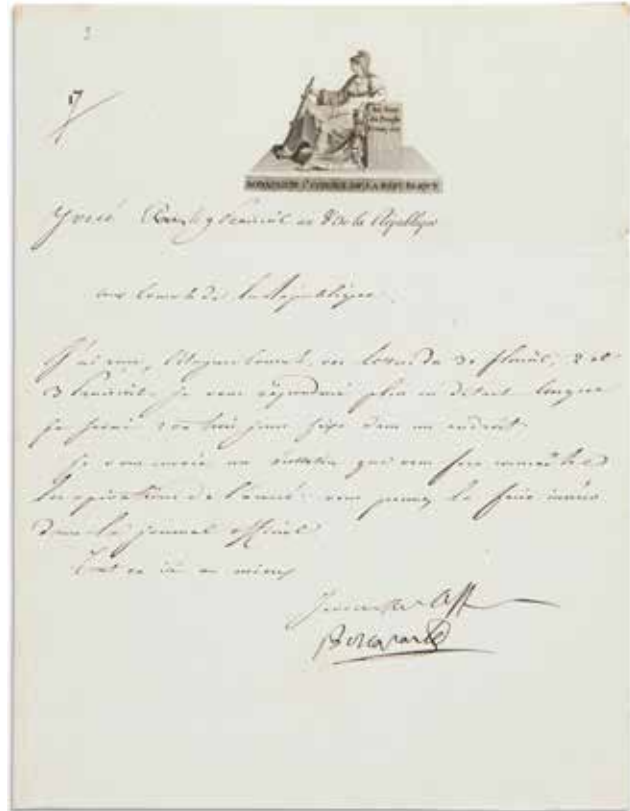 2
17
Au Nom
du Peuple
Français
BONAPARTE 1er CONSUL DE LA REPUBLIQUE
9 Prairial an 8 de la République
aux Consuls de la République.
J'ai reçu, Citoyens Consuls, vos du 30 floréal, 2 et
3 Prairial. Je vous répondrai plus en détail lorsque
je serai 2 ou trois jours fixé dans un endroit.
Je vous envoie un bulletin qui vous fera connaître
les opérations de l'armée: vous pouvez le faire insérer
dans le journal officiel
Tout va ici au mieux
Bonaparte